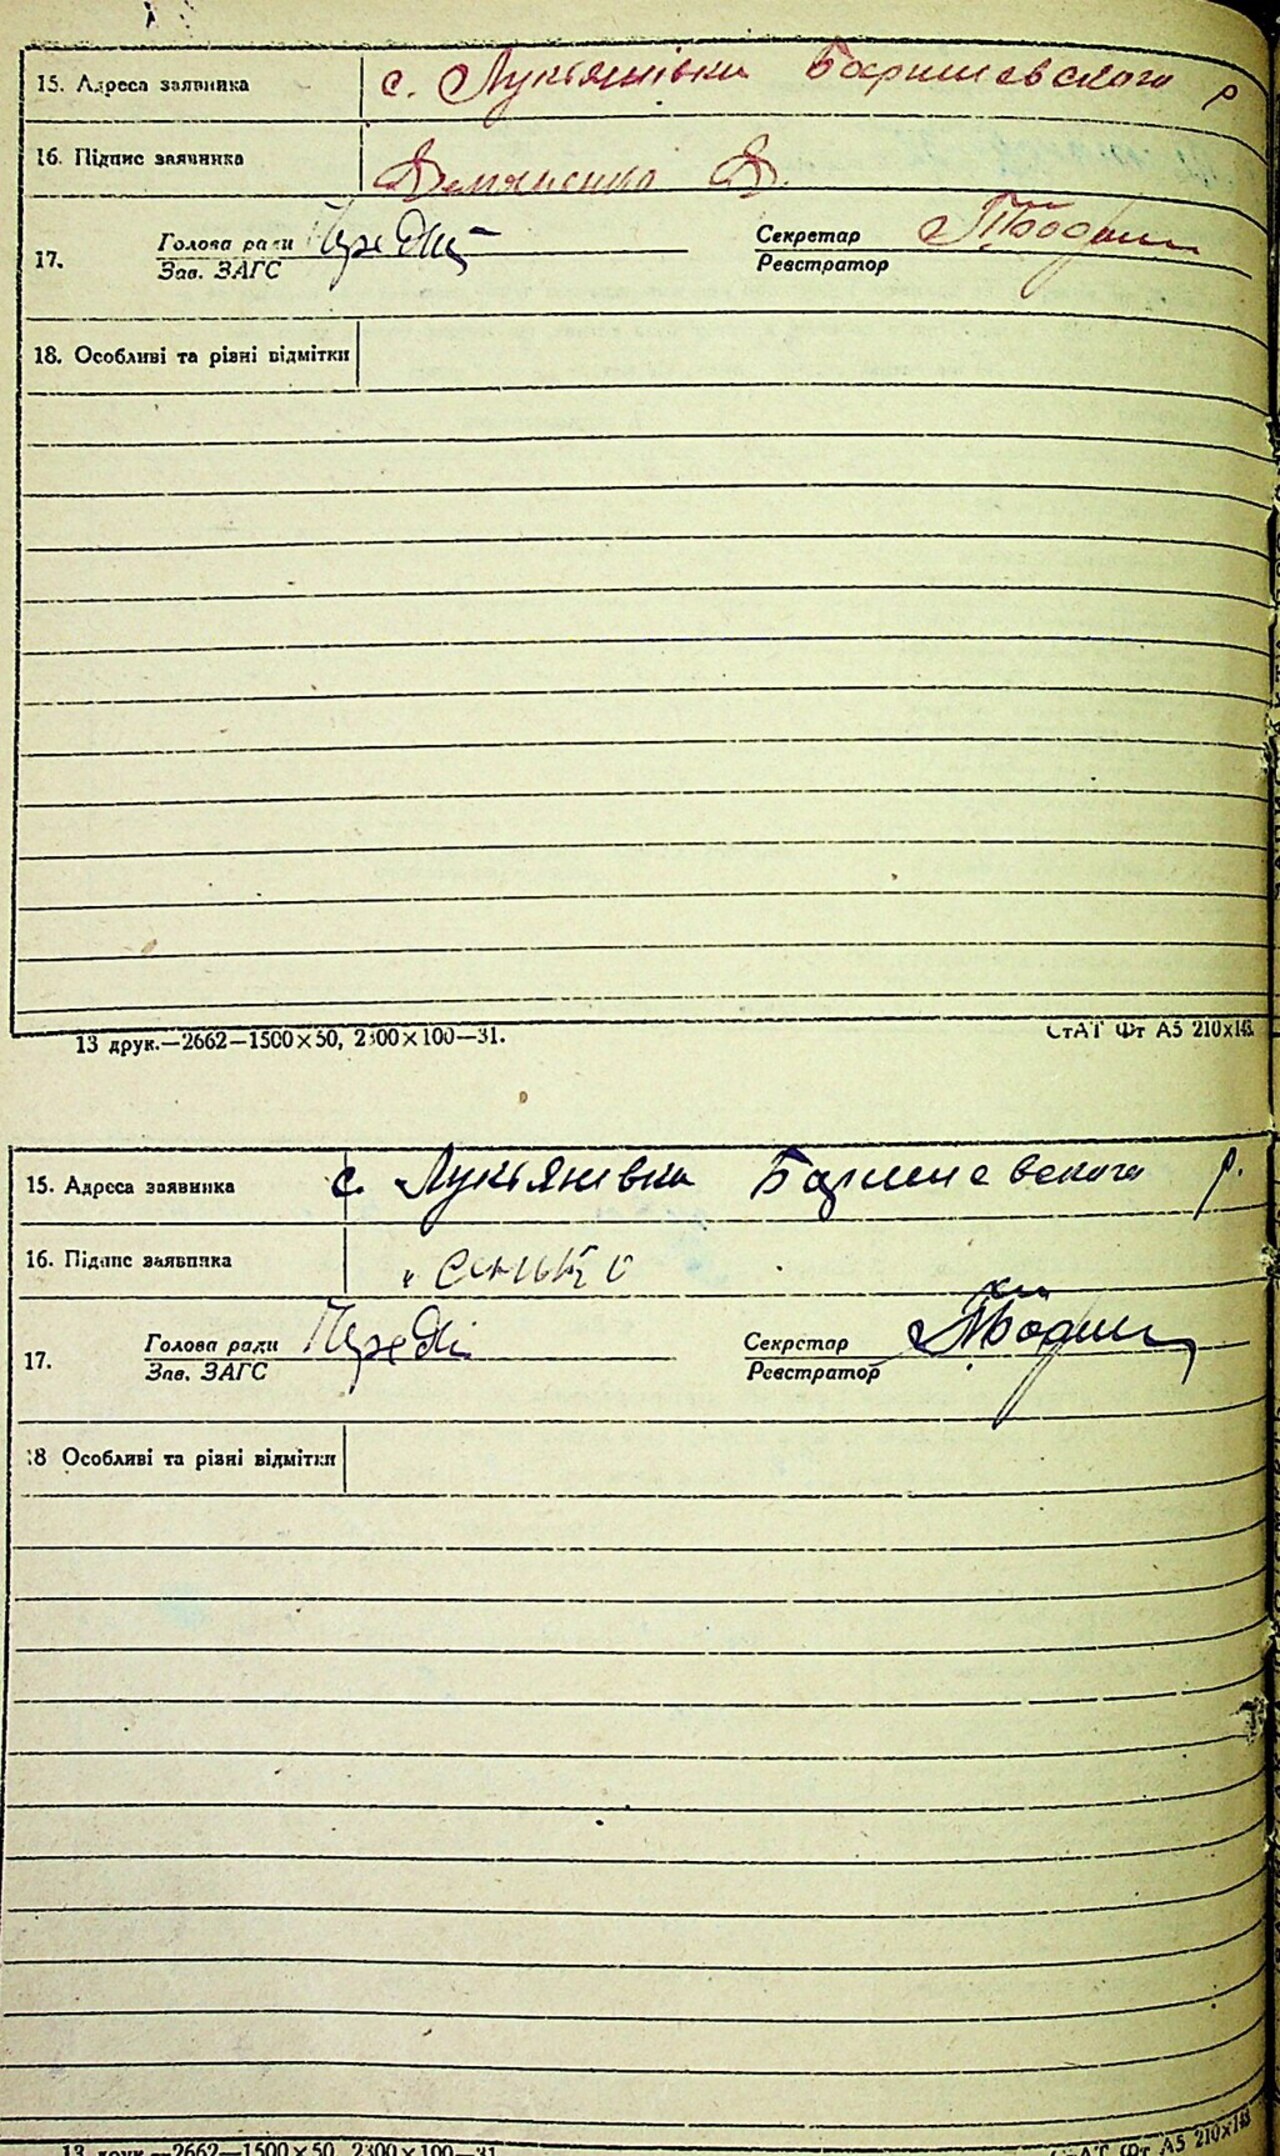 15. Адреса заявника с. Лукьянівки Баришевского р
16. Підпис заявника Демяненко Д.
17. Голова ради Секретар
Зав. ЗАГС Реєстратор
18. Особливі та різні відмітки
13 друк.—2662—1500×50, 2300×100—31. СтАТ Фт А5 210х148
15. Адреса заявника с. Лукьянівка Баришевского р.
16. Підпис заявника
17. Голова ради Секретар
Зав. ЗАГС Реєстратор
18 Особливі та різні відмітки
13 друк.—2662—1500×50, 2300×100—31. СтАТ Фт А5 210х148